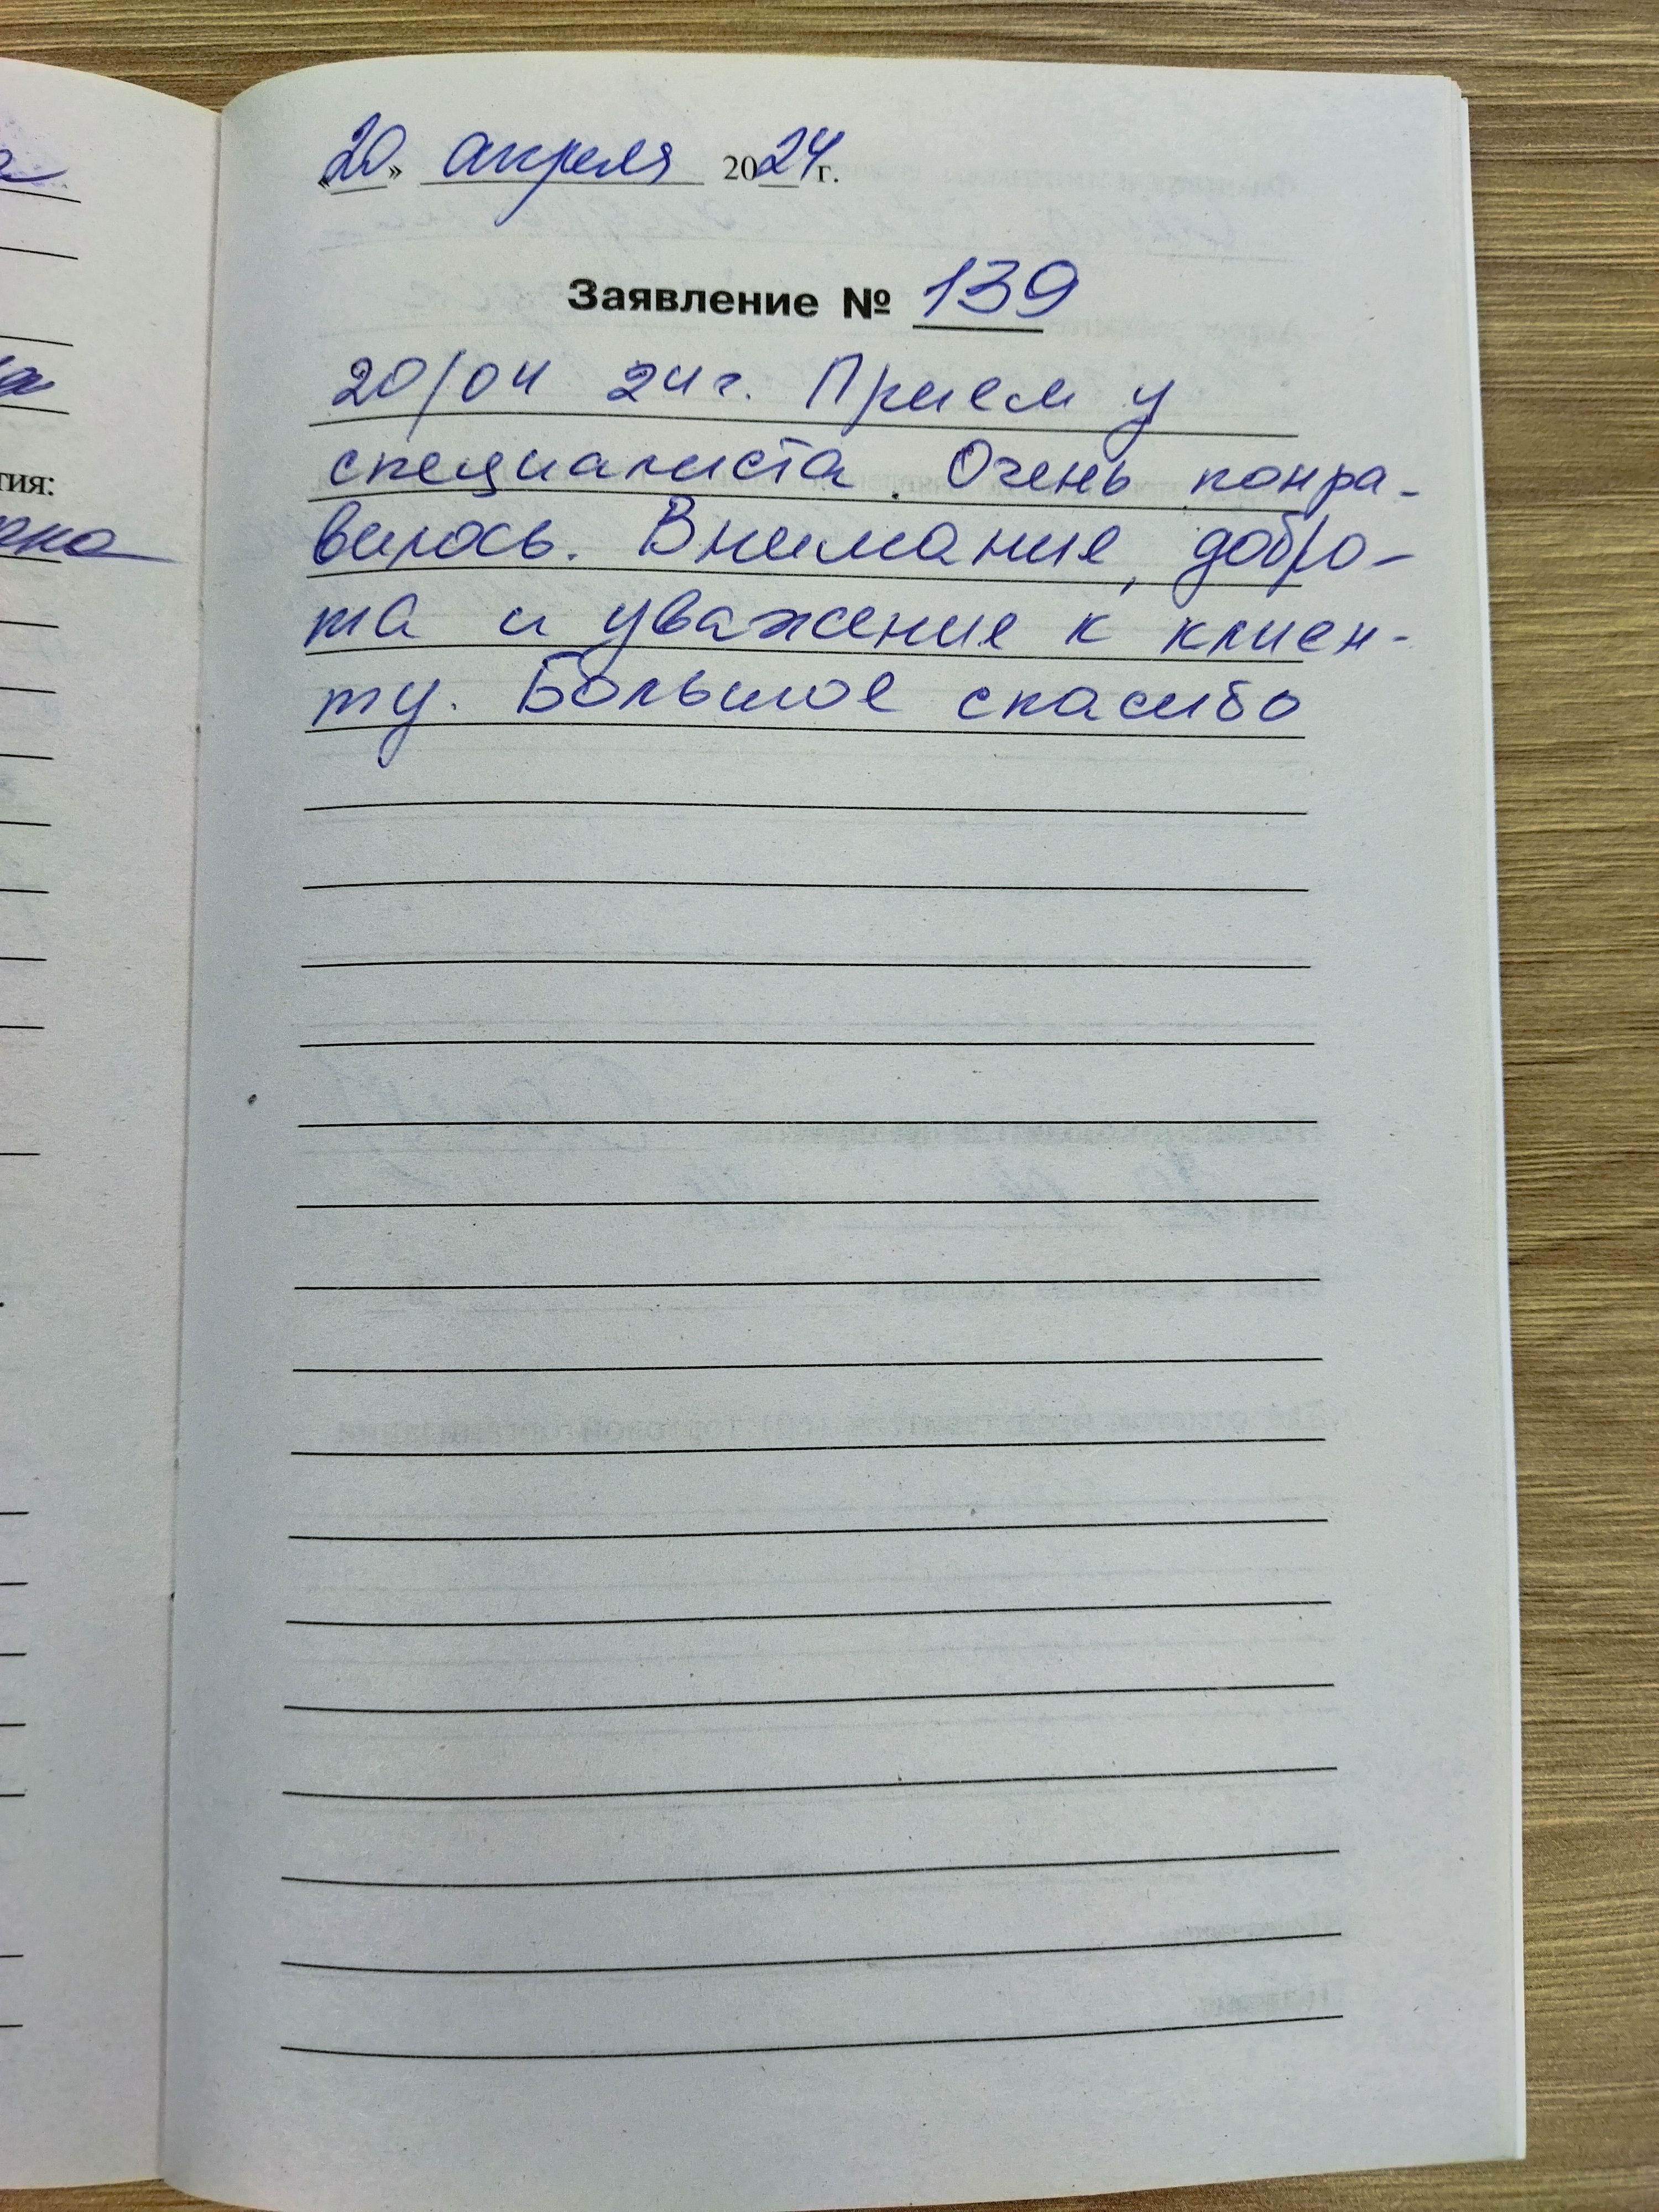 «20» апреля 2024 г.
Заявление № 139
20/04 24г. Прием у
специалиста. Очень понра-
вилось. Внимание, добро-
та и уважение к клиен-
ту. Большое спасибо
тия: